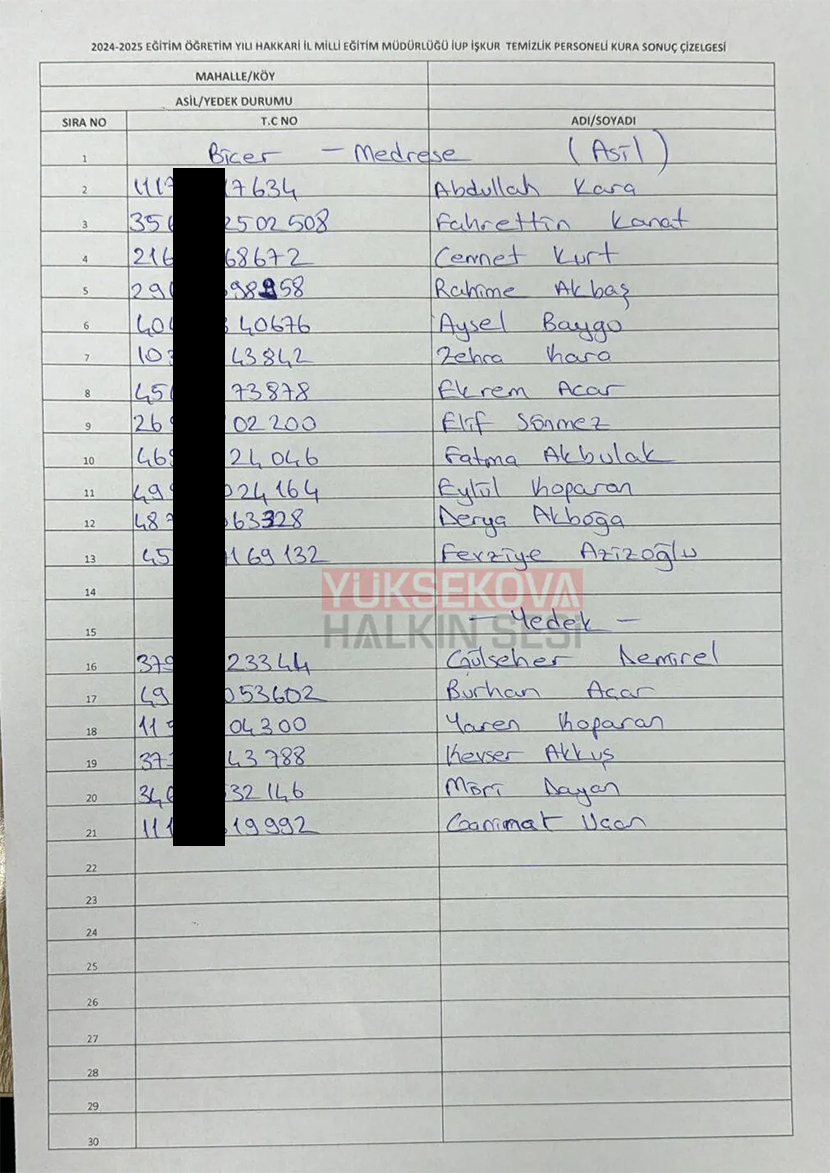 2024-2025 EĞİTİM ÖĞRETİM YILI HAKKARİ İL MİLLİ EĞİTİM MÜDÜRLÜĞÜ İUP İŞKUR TEMİZLİK PERSONELİ KURA SONUÇ ÇİZELGESİ
MAHALLE/KÖY
ASİL/YEDEK DURUMU
SIRA NO T.C NO ADI/SOYADI
1 Biçer - Medrese (Asil)
2 111 7634 Abdullah Kara
3 35 2502508 Fahrettin Kanat
4 216 68672 Cennet Kurt
5 29 98958 Rahime Akbaş
6 40 40676 Aysel Baygo
7 10 43842 Zehra Kara
8 45 73878 Ekrem Acar
9 26 02200 Elif Sönmez
10 46 24046 Fatma Akbulak
11 49 024164 Eylül Koparan
12 48 63328 Derya Akboğa
13 45 169132 Fevziye Azizoğlu
14
YÜKSEKOVA
15 - Yedek -
HALKIN SESİ
16 379 23344 Gülseher Demirel
17 49 053602 Burhan Acar
18 11 04300 Yaren Koparan
19 37 43788 Kevser Akkuş
20 34 32146 Möri Dayan
21 111 19992 Ganimat Uçan
22
23
24
25
26
27
28
29
30